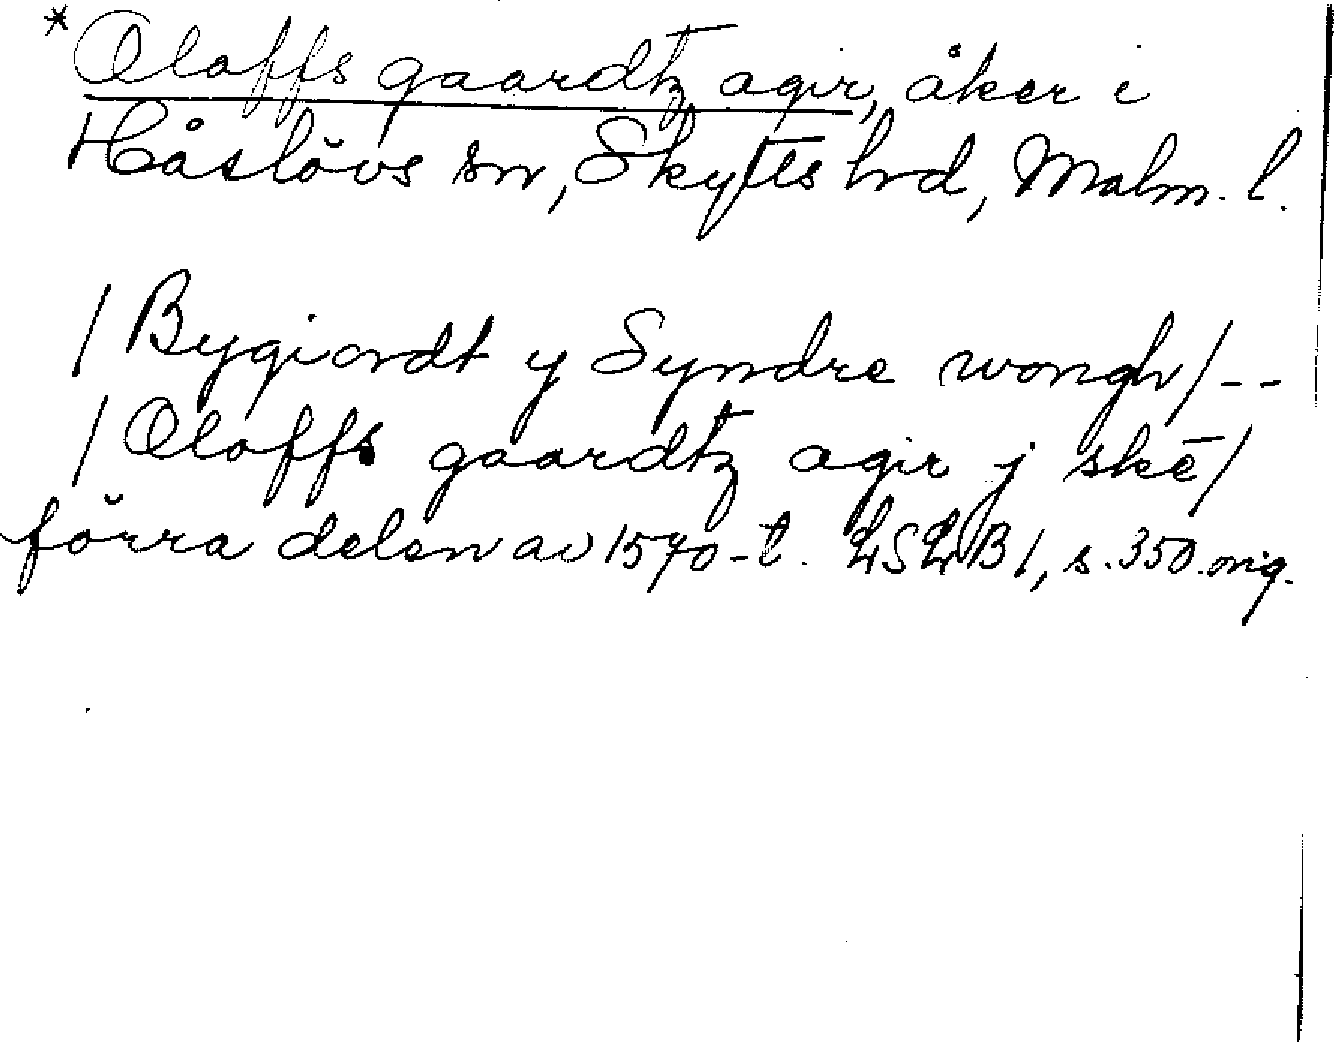 *Oloffs gaardtz agir, åker i
Håslövs sn, Skytts hrd, Malm. l.
/ Bygiordt y Syndre wongh / --
/ Oloffs gaardtz agir j skē /
förra delen av 1570-t. LSLB 1, s. 350. orig.